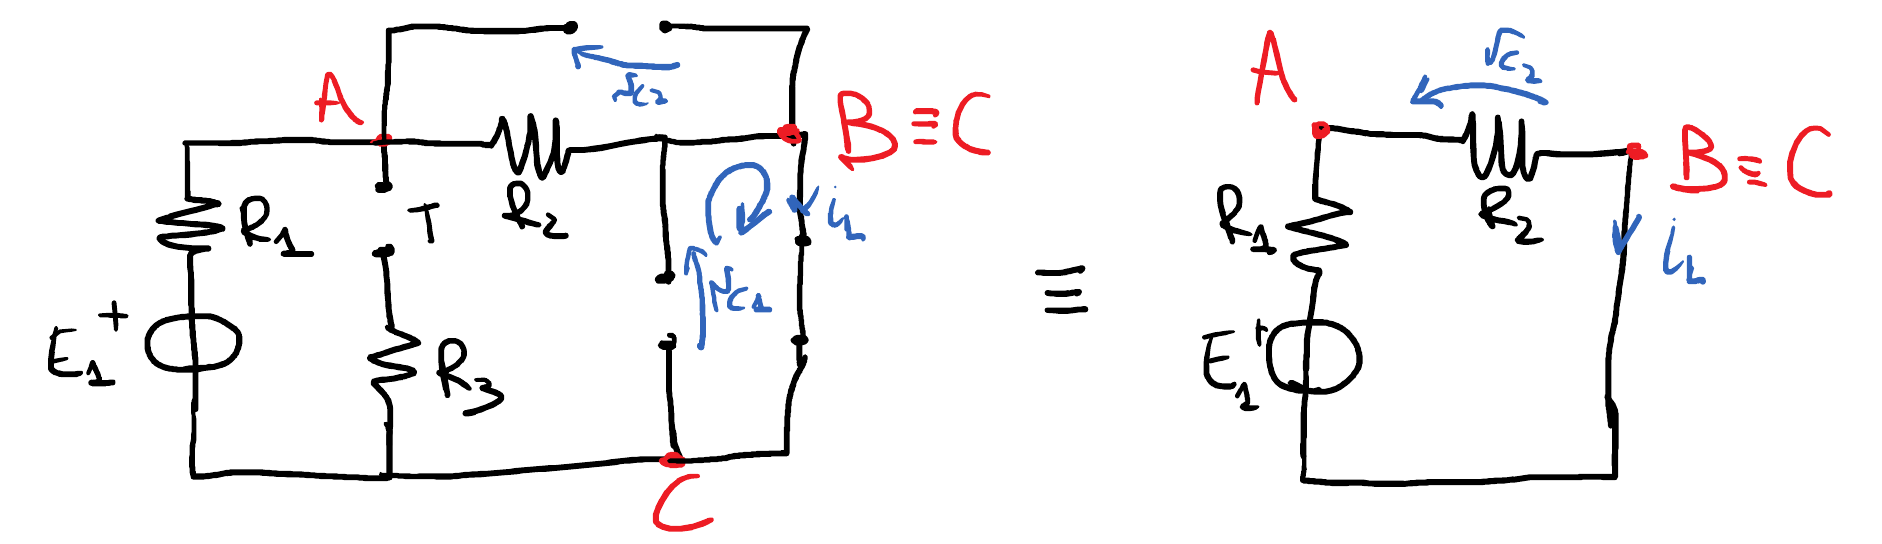 A
v_C2
B≡C
R_1
T
R_2
i_L
v_C1
E_1
+
R_3
C
≡
A
v_C2
B≡C
R_1
R_2
i_L
E_1
+